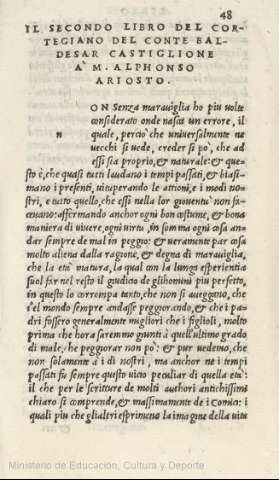 48
IL SECONDO LIBRO DEL COR-
TEGIANO DEL CONTE BAL-
DESAR CASTIGLIONE
A' M. ALPHONSO
ARIOSTO.
n
ON Senza marauiglia ho piu uolte
considerato onde nasca un errore, il
quale, percio che uniuersalmente ne
uecchi si uede, creder si pò, che ad
essi sia proprio, & naturale: & que-
sto è, che quasi tutti laudano i tempi passati, & biasi-
mano i presenti, uituperando le attioni, e i modi no-
stri, e tutto quello, che essi nella lor giouentu non fa-
ceuano: affermando anchor ogni bon costume, & bona
maniera di uiuere, ogni uirtu, in somma ogni cosa an-
dar sempre de mal in peggio: & ueramente par cosa
molto aliena dalla ragione, & degna di marauiglia,
che la età matura, la qual con la lunga esperientia
suol far nel resto il giudicio de glihomini piu perfetto,
in questo lo corrompa tanto, che non si aueggino, che
s'el mondo sempre andasse peggiorando, & che i pa-
dri fossero generalmente migliori che i figlioli, molto
prima che hora saremmo giunti à quell'ultimo grado
di male, che peggiorar non pò: & pur uedemo, che
non solamente à i dì nostri, ma anchor ne i tempi
passati fu sempre questo uicio peculiar di quella età:
il che per le scritture de molti authori antichissimi
chiaro si comprende, & massimamente de i Comici: i
quali piu che glialtri esprimeno la imagine della uita
Ministerio de Educación, Cultura y Deporte